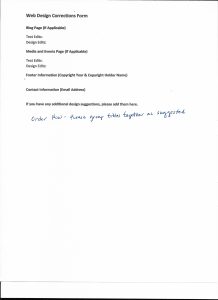 Web Design Corrections Form
Blog Page (If Applicable)
Text Edits:
Design Edits:
Media and Events Page (If Applicable)
Text Edits:
Design Edits:
Footer Information (Copyright Year & Copyright Holder Name)
Contact Information (Email Address)
If you have any additional design suggestions, please add them here.
Order Now - Please group titles together as suggested